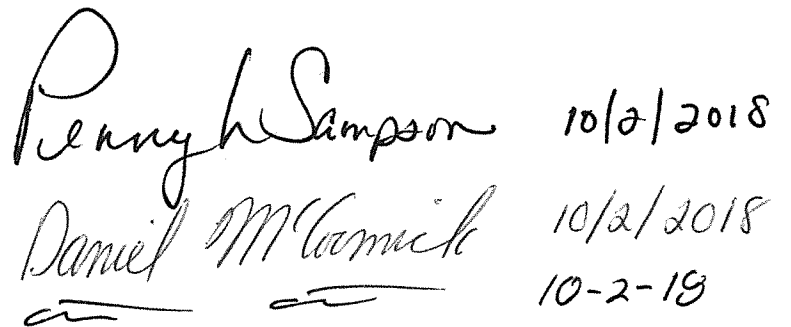 Penny L Sampson 10/2/2018
Daniel McCormick 10/2/2018
10-2-18